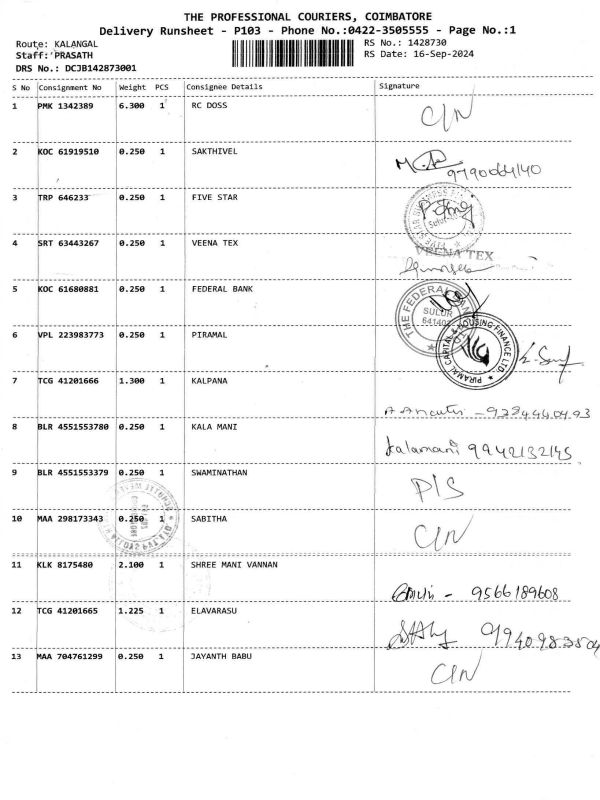 THE PROFESSIONAL COURIERS, COIMBATORE
Delivery Runsheet - P103 - Phone No.:0422-3505555 - Page No.:1
Route: KALANGAL
RS No.: 1428730
Staff: PRASATH
RS Date: 16-Sep-2024
DRS No.: DCJB142873001
S No Consignment No Weight PCS Consignee Details Signature
1 PMK 1342389 6.300 1 RC DOSS C/N
2 KOC 61919510 0.250 1 SAKTHIVEL
9790064140
3 TRP 646233 0.250 1 FIVE STAR
4 SRT 63443267 0.250 1 VEENA TEX
VEENA TEX
5 KOC 61680881 0.250 1 FEDERAL BANK
THE FEDERAL BANK
SULUR
6 VPL 223983773 0.250 1 PIRAMAL
PIRAMAL CAPITAL & HOUSING FINANCE LTD.
7 TCG 41201666 1.300 1 KALPANA
8 BLR 4551553780 0.250 1 KALA MANI
kalamani 9942132145
9 BLR 4551553379 0.250 1 SWAMINATHAN
D/S
10 MAA 298173343 0.250 1 SABITHA
C/N
11 KLK 8175480 2.100 1 SHREE MANI VANNAN
9566189608
12 TCG 41201665 1.225 1 ELAVARASU
13 MAA 704761299 0.250 1 JAYANTH BABU
C/N